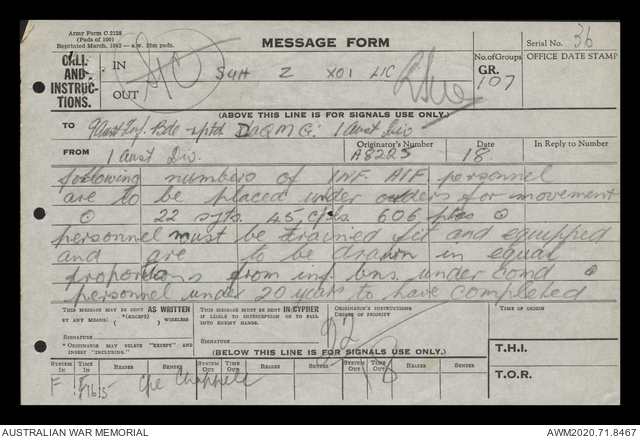 Army Form C.2128
(Pads of 100)
Reprinted March, 1942
MESSAGE FORM
Serial No. 36
CALL
AND
INSTRUC-
TIONS.
IN
OUT
SQH Z XO1 LIC
No. of Groups
GR.
107
OFFICE DATE STAMP
(ABOVE THIS LINE IS FOR SIGNALS USE ONLY.)
TO 9 Aust Inf. Bde rptd DAQMG: 1 Aust Div
FROM 1 Aust Div.
Originator's Number
A8225
Date
18.
In Reply to Number
following numbers of INF. AIF. personnel
are to be placed under orders for movement
22 sgts. 45 cpls. 606 ptes
personnel must be trained fit and equipped
and are to be drawn in equal
proportions from inf. bns. under comd
personnel under 20 years to have completed
THIS MESSAGE MAY BE SENT AS WRITTEN
BY ANY MEANS; (EXCEPT) WIRELESS
SIGNATURE
*ORIGINATOR MAY DELETE "EXCEPT" AND
INSERT "INCLUDING."
THIS MESSAGE MUST BE SENT IN CYPHER
IF LIABLE TO INTERCEPTION OR TO FALL
INTO ENEMY HANDS.
SIGNATURE
ORIGINATOR'S INSTRUCTIONS
DEGREE OF PRIORITY
TIME OF ORIGIN
(BELOW THIS LINE IS FOR SIGNALS USE ONLY.)
T.H.I.
T.O.R.
SYSTEM IN
TIME IN
READER
SENDER
SYSTEM OUT
TIME OUT
READER
SENDER
SYSTEM OUT
TIME OUT
READER
SENDER
F 1615 Cpe Chappels
AUSTRALIAN WAR MEMORIAL
AWM2020.71.8467